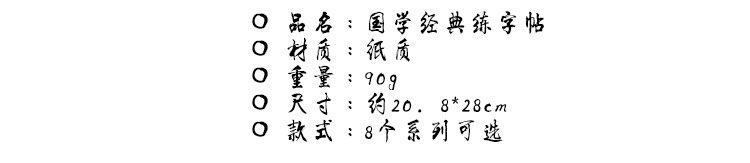 ○ 品名：国学经典练字帖
○ 材质：纸质
○ 重量：90g
○ 尺寸：约20．8*28cm
○ 款式：8个系列可选